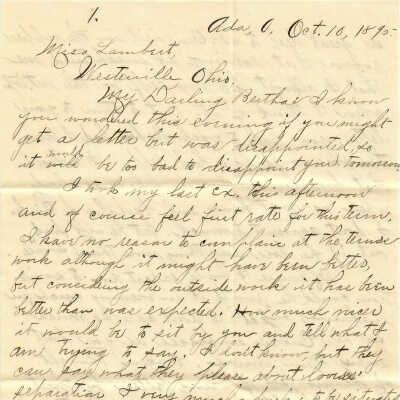 1.
Ada, O. Oct. 10, 1895
Miss Lambert,
Westerville Ohio.
My Darling Bertha: I know
you wondered this evening if you might
get a letter but was disappointed, so
it would be too bad to disappoint you tomorrow
I took my last ex. this afternoon
and of course feel first rate for this term.
I have no reason to complain at the terms
work although it might have been better,
but considering the outside work it has been
better than was expected. How much nicer
it would be to sit by you and tell what I
am trying to say. I don't know, but they
can say what they please about lovers'
separation I very much